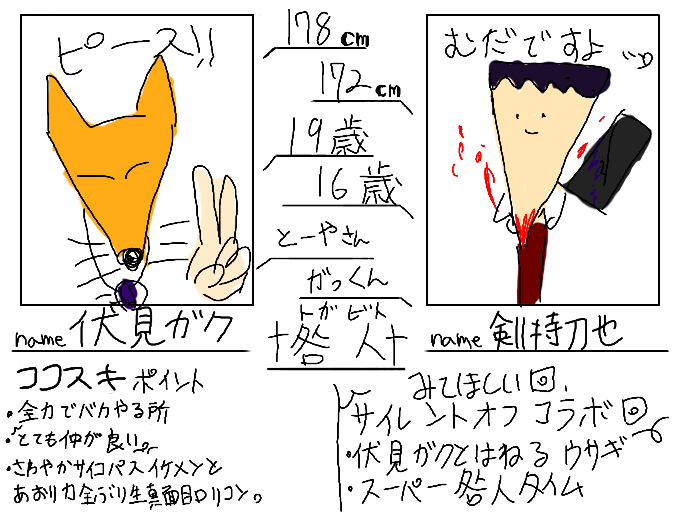 ピース!!
178cm
172cm
19歳
16歳
とーやさん
がっくん
トガビト
†咎人†
むだですよ
name 伏見ガク
name 剣持刀也
ココスキポイント
・全力でバカやる所
・とても仲が良い。
・さわやかサイコパスイケメンと
あおり力全ぶり生真面目ロリコン。
みてほしい回、
サイレントオフコラボ回
・伏見ガクとはねるウサギ
・スーパー咎人タイム